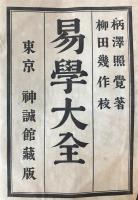 柄澤照覺著
柳田幾作校
易學大全
東京 神誠館藏版